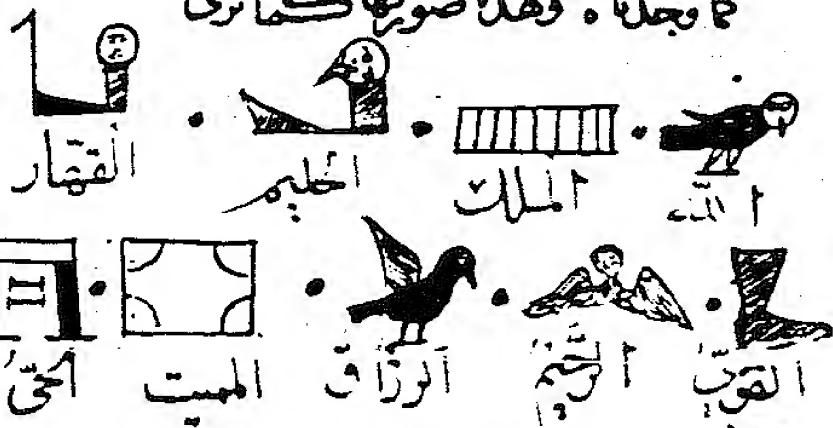 كما وجدنا ۰ وهذه صورتها كما ترى
الله الملك الحليم القهار
القوىّ الرَّحيمُ الرزاق المميت الحىُّ